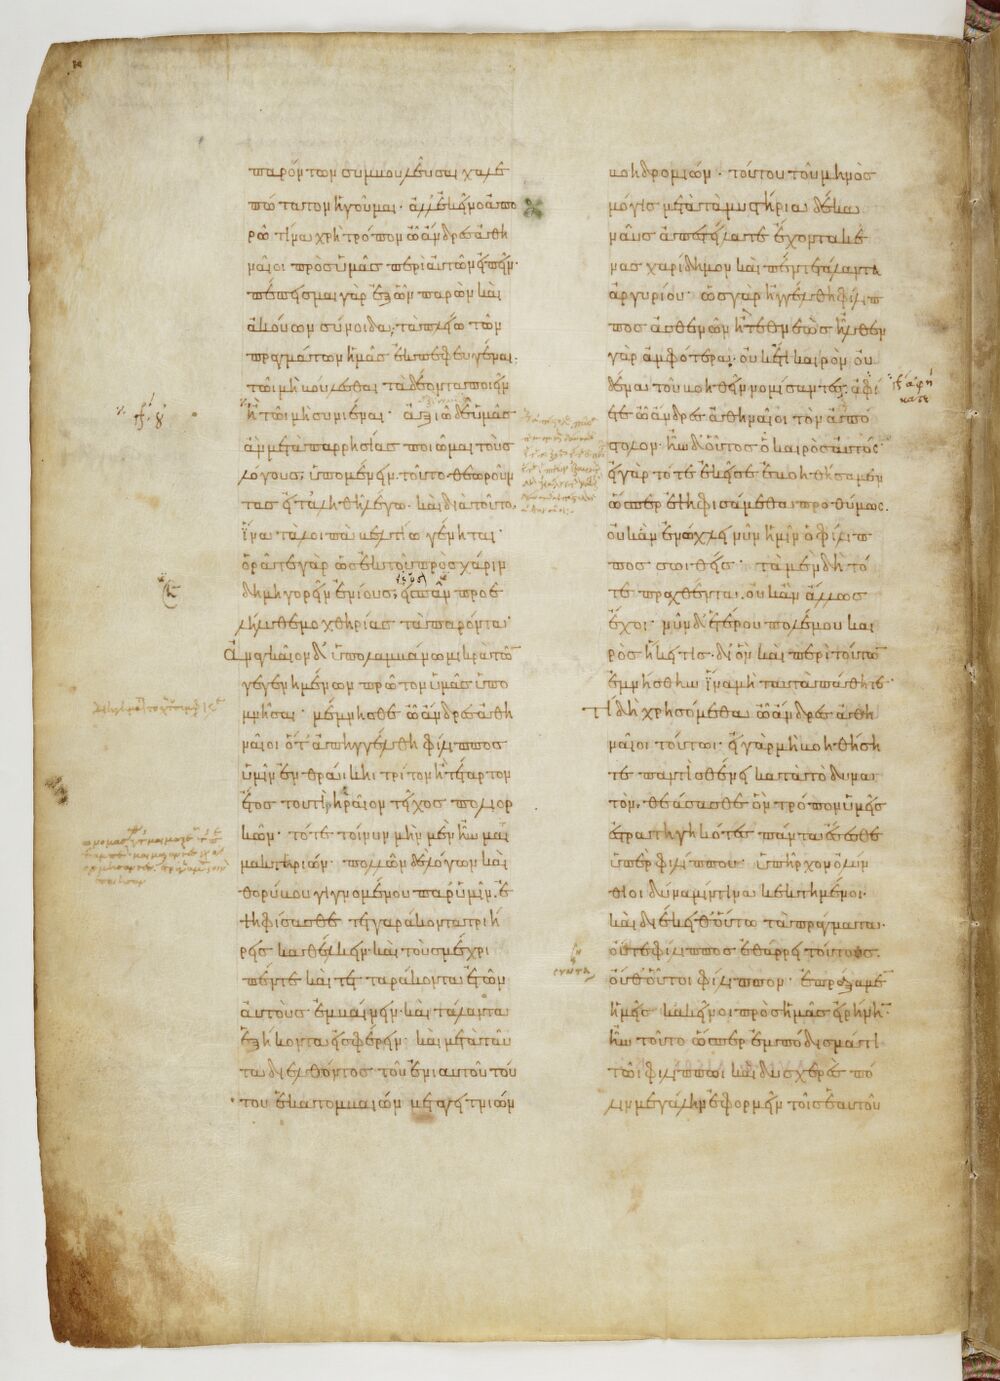 παρόντων συμβουλεῦσαι χαλε
πώτατον ἡγοῦμαι· ἀλλ' ἐκεῖνο ἀπο
ρῶ τίνα χρὴ τρόπον ὦ ἄνδρες ἀθη
ναῖοι πρὸς ὑμᾶς περὶ αὐτῶν εἰπεῖν·
πέπεισμαι γὰρ ἐξ ὧν παρὼν καὶ
ἀκούων σύνοιδα, τὰ πλείω τῶν
πραγμάτων ἡμᾶς ἐκπεφευγέναι,
τῶι μὴ βούλεσθαι τὰ δέοντα ποιεῖν
ἢ τῶι μὴ συνιέναι· ἀξιῶ δὲ ὑμᾶς
ἂν μετὰ παρρησίας ποιῶμαι τοὺς
λόγους, ὑπομένειν· τοῦτο θεωροῦν
τας εἰ τἀληθῆ λέγω· καὶ διὰ τοῦτο,
ἵνα τὰ λοιπὰ βελτίω γένηται·
ὁρᾶτε γὰρ ὡς ἐκ τοῦ πρὸς χάριν
δημηγορεῖν ἐνίους, εἰς πᾶν προε
λήλυθε μοχθηρίας τὰ παρόντα·
Ἀναγκαῖον δ' ὑπολαμβάνω μικρὰ τῶν
γεγενημένων πρῶτον ὑμᾶς ὑπο
μνῆσαι· μέμνησθε ὦ ἄνδρες ἀθη
ναῖοι ὅτ' ἀπηγγέλθη φίλιππος
ὑμῖν ἐν θράικηι τρίτον ἢ τέταρτον
ἔτος τουτὶ, ἡραῖον τεῖχος πολιορ
κῶν· τότε τοίνυν μὴν μὲν ἦν μαι
μακτηριών· πολλῶν δὲ λόγων καὶ
θορύβου γιγνομένου παρ' ὑμῖν, ἐ
ψηφίσασθε τετταράκοντα τριή
ρεις καθέλκειν καὶ τοὺς μέχρι
πέντε καὶ τετταράκοντα ἐτῶν
αὐτοὺς ἐμβαίνειν· καὶ τάλαντα
ἑξήκοντα εἰσφέρειν· καὶ μετὰ ταῦ
τα διελθόντος τοῦ ἐνιαυτοῦ τού
του ἑκατομβαιών μεταγειτνιών
βοηδρομιών· τούτου τοῦ μηνὸς
μόγις μετὰ τὰ μυστήρια δέκα
ναῦς ἀπεστείλατε ἔχοντα κε
νὰς χαρίδημον καὶ πέντε τάλαντα
ἀργυρίου· ὡς γὰρ ἠγγέλθη φίλιπ
πος ἀσθενῶν ἢ τεθνεώς ἦλθεν
γὰρ ἀμφότερα· οὐκέτι καιρὸν οὐ
δένα τοῦ βοηθεῖν νομίσαντες, ἀφί
ετε ὦ ἄνδρες ἀθηναῖοι τὸν ἀπό
στολον· ἦν δ' οὗτος ὁ καιρὸς αὐτός·
εἰ γὰρ τότε ἐκεῖσε ἐβοηθήσαμεν
ὥσπερ ἐψηφισάμεθα προθύμως,
οὐκ ἂν ἐνώχλει νῦν ἡμῖν ὁ φίλιπ
πος σωθείς· τὰ μὲν δὴ τό
τε πραχθέντα, οὐκ ἂν ἄλλως
ἔχοι· νῦν δ' ἑτέρου πολέμου και
ρὸς ἥκει τις· δι' ὃν καὶ περὶ τούτων
ἐμνήσθην ἵνα μὴ ταυτὰ πάθητε·
Τί δὴ χρησόμεθα ὦ ἄνδρες ἀθη
ναῖοι τούτωι· εἰ γὰρ μὴ βοηθήση
τε παντὶ σθένει κατὰ τὸ δυνα
τὸν, θεάσασθε ὃν τρόπον ὑμεῖς
ἐστρατηγηκότες πάντα ἔσεσθε
ὑπὲρ φιλίππου· ὑπῆρχον ὀλύν
θιοι δύναμίν τινα κεκτημένοι·
καὶ διέκειθ' οὕτω τὰ πράγματα·
οὔτε φίλιππος ἐθάρρει τούτους,
οὔθ' οὗτοι φίλιππον· ἐπράξαμεν
ἡμεῖς κἀκεῖνοι πρὸς ἡμᾶς εἰρήνην·
ἦν τοῦτο ὥσπερ ἐμπόδισμά τι
τῶι φιλίππωι καὶ δυσχερὲς πό
λιν μεγάλην ἐφορμεῖν τοῖς ἑαυτοῦ